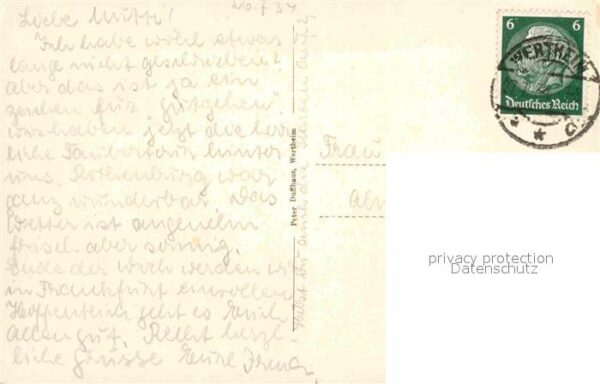 26.7.34
Liebe Mutti!
Ich habe wohl etwas
lange nicht geschrieben?
aber das ist ja ein
zeichen für "gutgehen"
wir haben jetzt die herr-
liche Taubertour hinter
uns. Rothenburg war
ganz wunderbar. Das
Wetter ist angenehm
frisch aber sonnig.
Ende der Woch werden wir
in Frankfurt einrollen
Hoffentlich geht es Euch
allen gut. Recht herz-
liche Grüsse Eure Irma
Peter Duffhaus, Wertheim
Frau
6 6
Deutsches Reich
WERTHEIM
privacy protection
Datenschutz